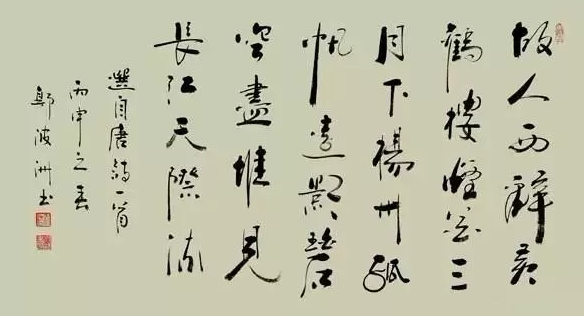 故人西辭黃
鶴樓煙花三
月下楊州孤
帆遠影碧
空盡惟見
長江天際流
選自唐詩一首
丙申之春
波洲书